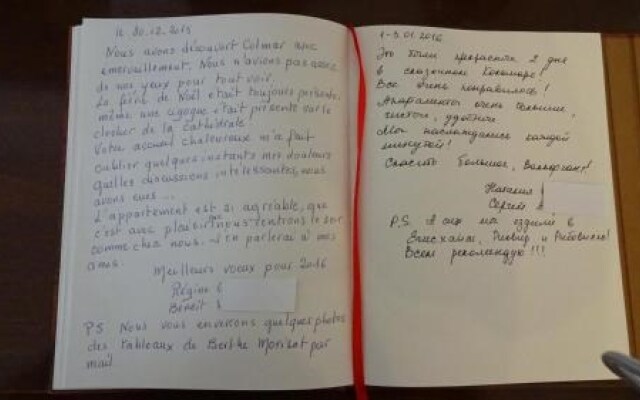 le 20.12.2015
Nous avons découvert Colmar avec
émerveillement. Nous n'avions pas assez
de nos yeux pour tout voir.
La féerie de Noël était toujours présente,
même une cigogne était présente sur le
clocher de la cathédrale!
Votre accueil chaleureux m'a fait
oublier quelques instants mes douleurs
quelles discussions intéressantes, nous
avons eues ...
L'appartement est si agréable, que
c'est avec plaisir que nous rentrons le soir
comme chez nous. J'en parlerai à mes
amis.
Meilleurs voeux pour 2016
Régine
Benoît
PS Nous vous enverrons quelques photos
des tableaux de Berthe Morisot par
mail
1-3.01.2016
Это были прекрасные 2 дня
в сказочном Кольмаре!
Все очень понравилось!
Апартаменты очень большие,
чистые, удобные.
Мы наслаждались каждой
минутой!
Спасибо большое, Вольфганг!
Наталия
Сергей
P.S. А еще мы ездили в
Эгисхайм, Риквир и Рибовилле!
Всем рекомендую!!!